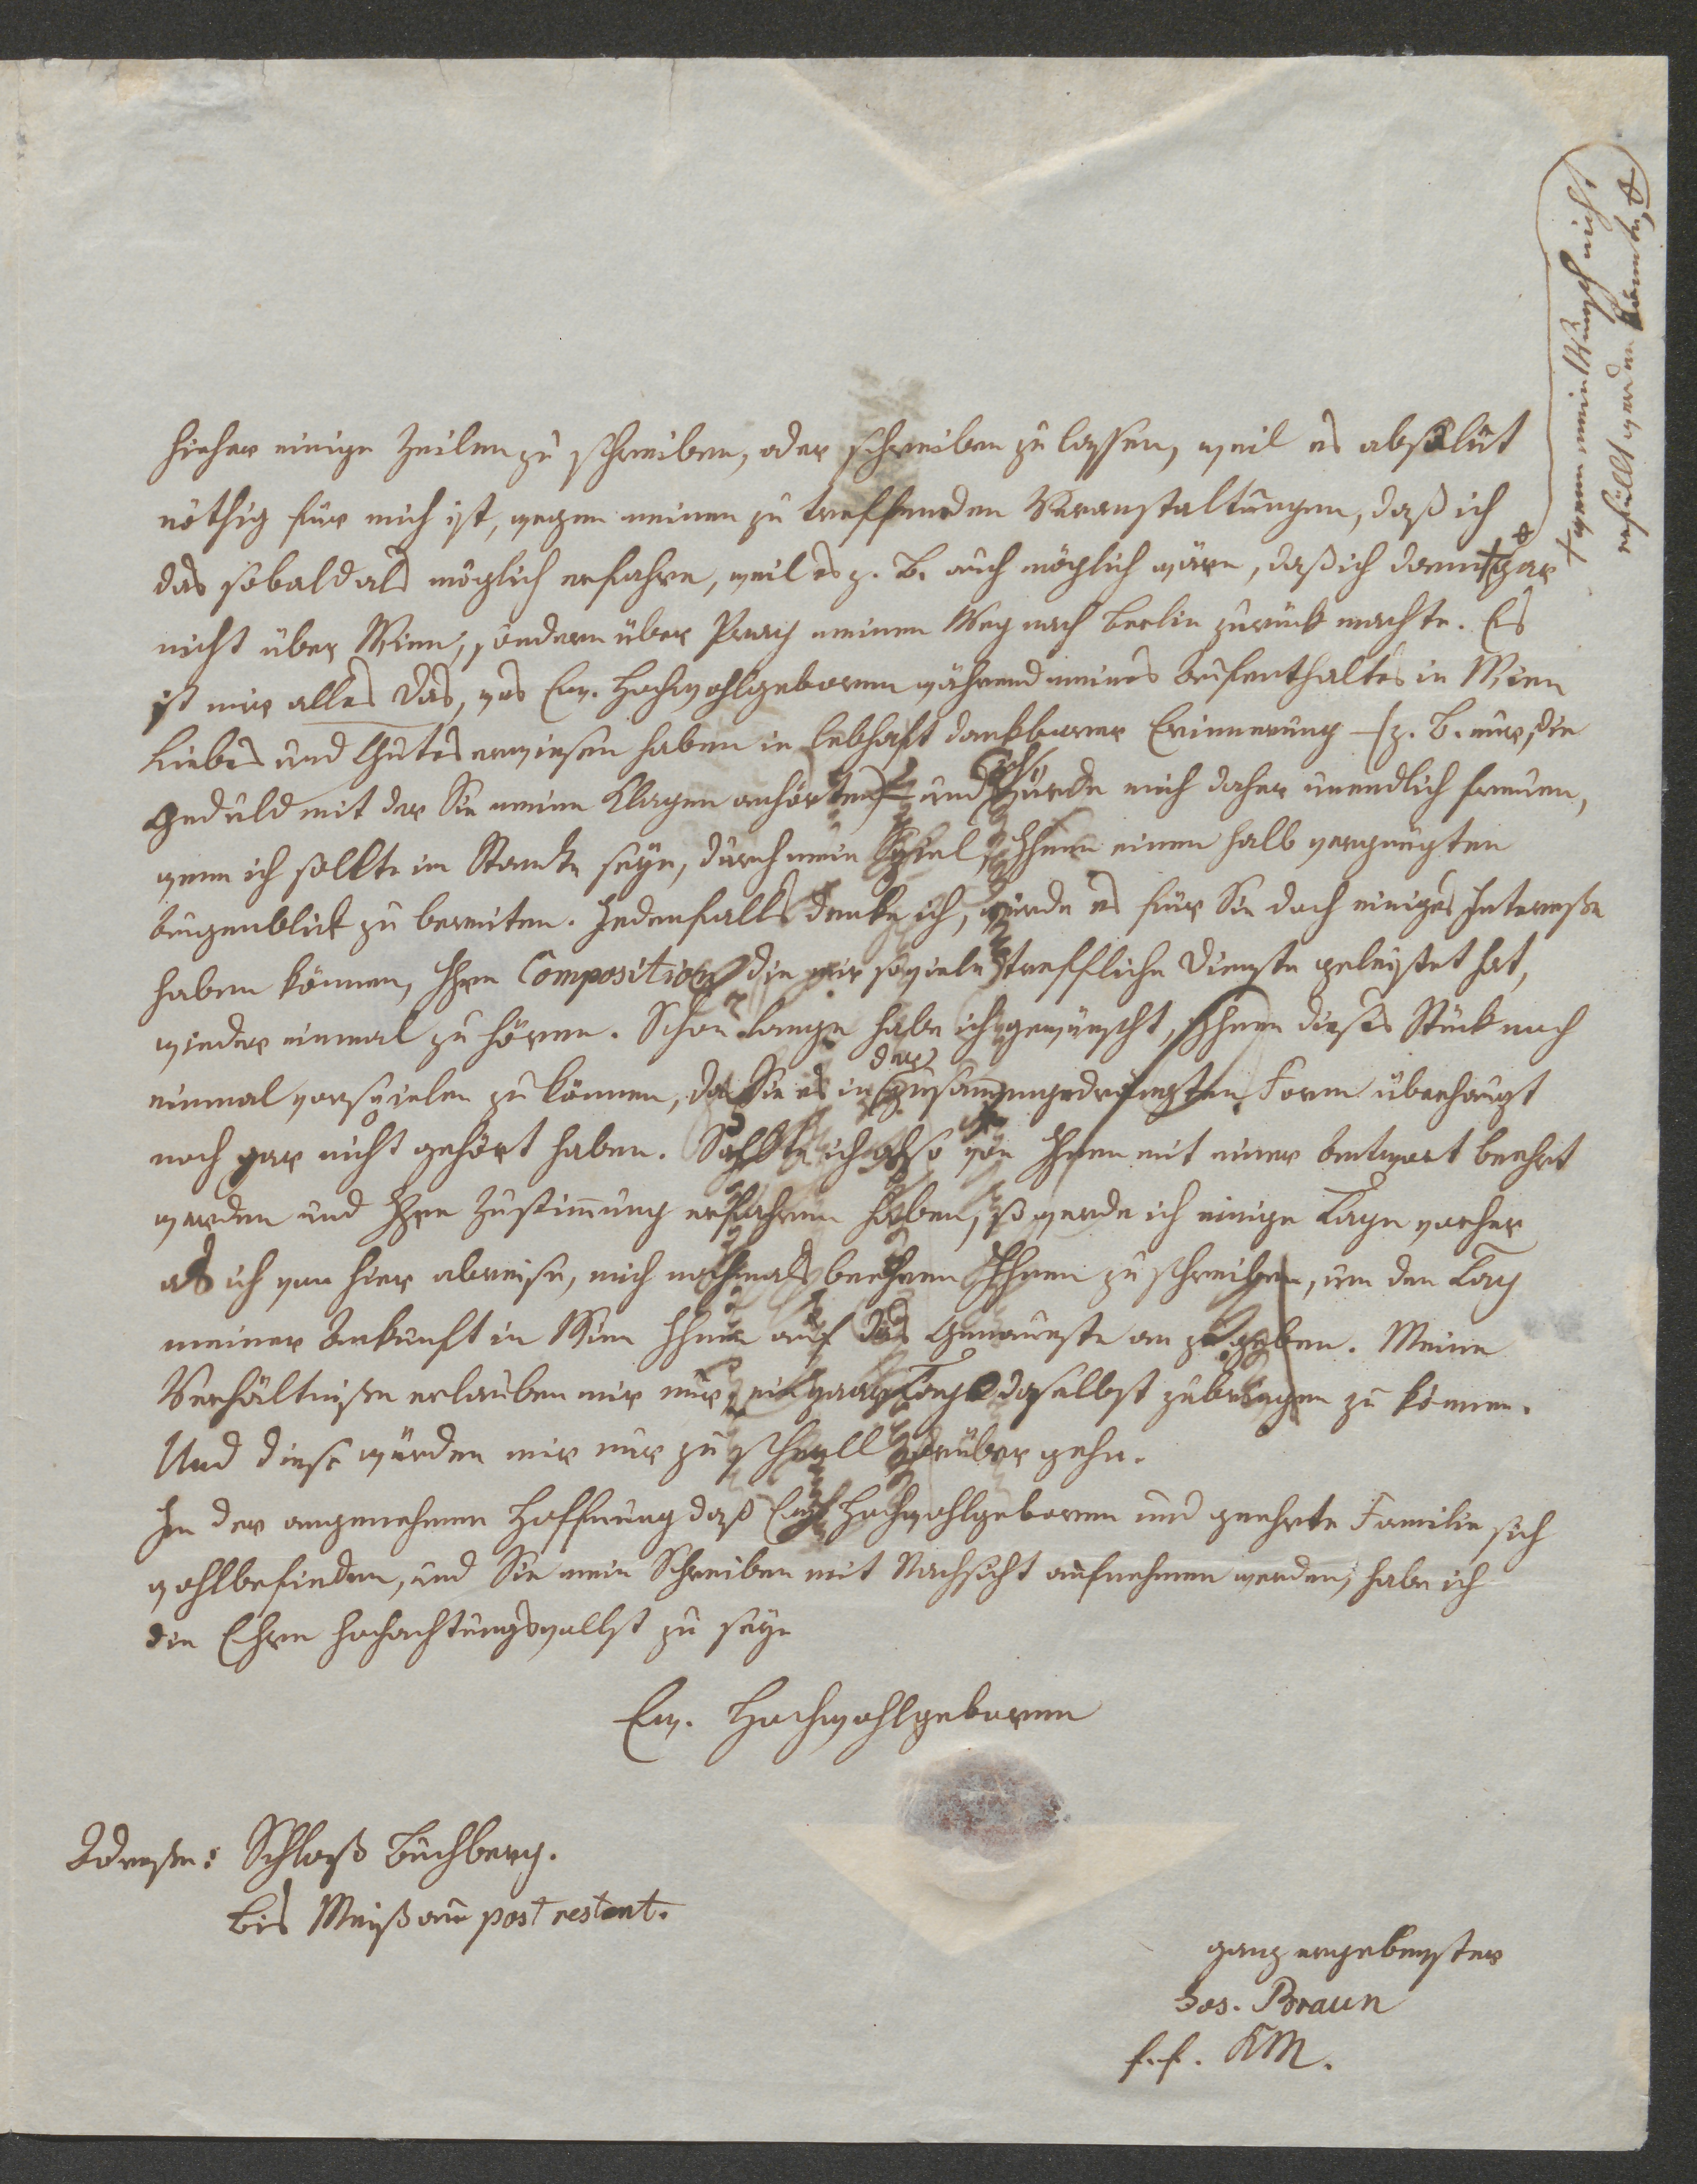 hieher einige Zeilen zu schreiben, oder schreiben zu lassen, weil es absolut
nöthig für mich ist, wegen meinen zu treffenden Veranstaltungen, daß ich
das sobald als möglich erfahre, weil es z. B. auch möglich wäre, daß ich dann + gar
nicht über Wien, sondern über Prag meinen Weg nach Berlin zurück machte. Es
ist mir alles das, was Ew. Hochwohlgeboren während meines Aufenthaltes in Wien
Liebes und Gutes erwiesen haben in lebhaft dankbarer Erinnerung – (z. B. nur, die
Geduld mit der Sie meine Klagen anhörten) – und würde mich daher unendlich freuen,
wenn ich sollte im Stande seyn, durch mein Spiel, Ihnen einen halb vergnügten
Augenblick zu bereiten. Jedenfalls denke ich, würde es für Sie doch einiges Interesse
haben können, Ihre Composition die mir so viele treffliche Dienste geleistet hat,
wieder einmal zu hören. Schon lange habe ich gewünscht, Ihnen dieses Stück noch
einmal vorspielen zu können, da Sie es in der zusammengedrängten Form überhaupt
noch gar nicht gehört haben. Sollte ich also von Ihnen mit einer Antwort beehrt
werden und Ihre Zustimmung erfahren haben, so werde ich einige Tage vorher
als ich von hier abreise, mich nochmals beehren Ihnen zu schreiben, um den Tag
meiner Ankunft in Wien Ihnen auf das Genaueste an zu geben. Meine
Verhältniße erlauben mir nur, ein paar Tage daselbst zubringen zu können.
Und diese würden mir nur zu schnell vorüber gehn.
In der angenehmen Hoffnung daß Ew. Hochwohlgeboren und geehrte Familie sich
wohlbefinden, und Sie mein Schreiben mit Nachsicht aufnehmen werden, habe ich
die Ehre hochachtungsvollst zu seyn
Ew. Hochwohlgeboren
Adresse: Schloß Buchberg.
bis Meißau post restant.
ganz ergebenster
Jos. Braun
f. f. KM.
+ wenn meine Wünsche nicht
erfüllt werden könnten, +